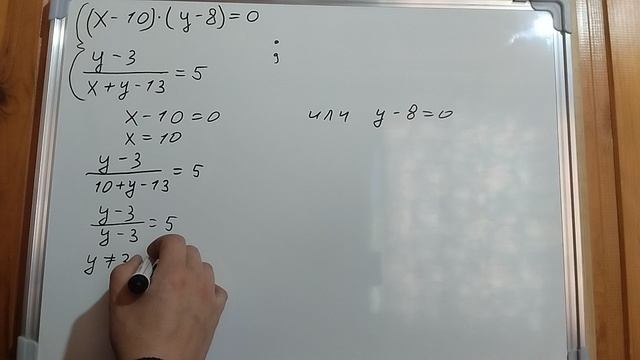 (x-10)·(y-8)=0
;
y-3
x+y-13
=5
x-10=0 или y-8=0
x=10
y-3
10+y-13
=5
y-3
y-3
=5
y≠